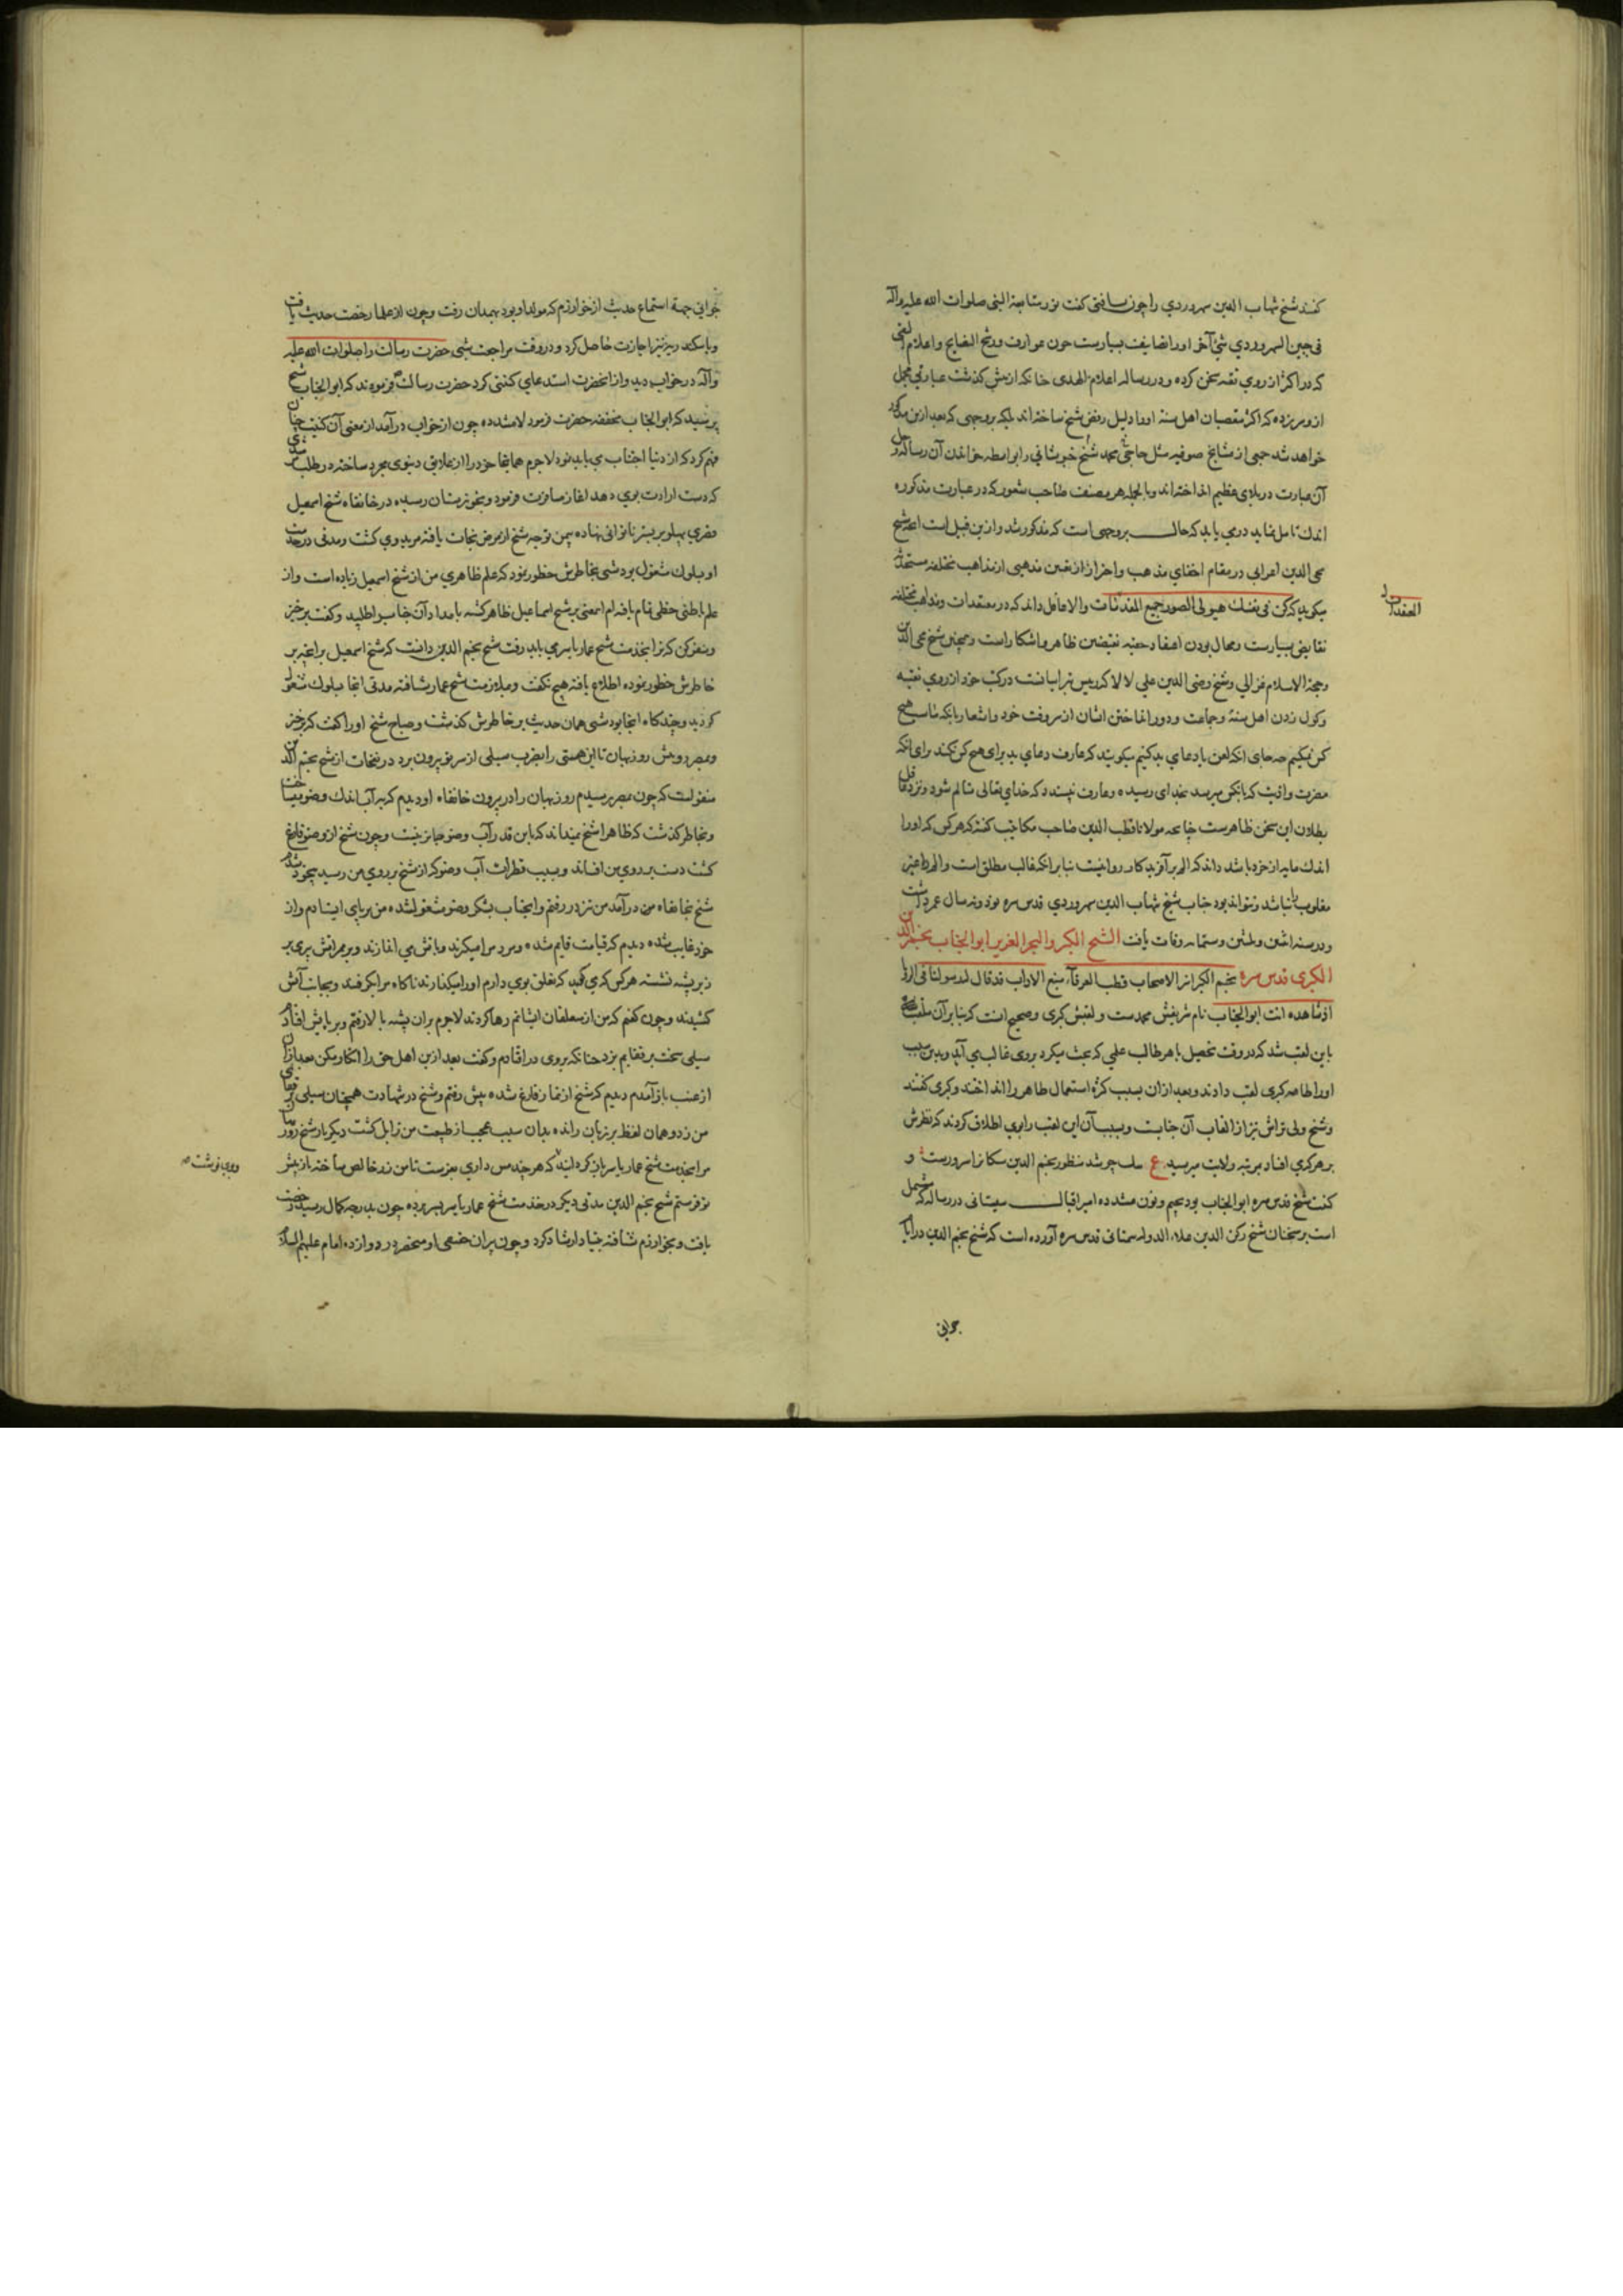 کفتند شیخ شهاب الدین سهروردی را چون یافتی کفت نور متابعة النبی صلوات الله علیه وآله
فی جبین السهروردی شئ آخر اورا تصانیف بسیارست چون عوارف ورشح النصایح واعلام التقی
که در اکثر از روی تقیه سخن کرده ودر رساله اعلام الهدی چنانکه از پیش کذشت عبارتی مجمل
ازو سر زده که اکثر متعصبان اهل سنة اورا دلیل رفض شیخ ساخته اند بلکه بوجهی که بعد ازین مذکور
خواهد شد جمعی از مشایخ صوفیه مثل حاجی محمد شیخ خبوشانی را بواسطه خواندن آن رساله وحل
آن عبارت در بلای عظیم انداخته اند وبالجمله هر منصف صاحب شعور که در عبارت مذکوره
اندک تامل نماید درمی یابد که حال بر وجهی است که مذکور شد وازین قبیل است انچه شیخ
محی الدین اعرابی در مقام اخفای مذهب واحتراز از تعین مذهبی از مذاهب مختلفه مستحدثه
میکوید که کن فی نفسک هیولی لصور جمیع المعتقدات والا عاقل داند که در معتقدات ومذاهب مختلفه
نقایض بسیارست ومحال بودن اعتقاد حقیه نقیضین ظاهر وآشکارا است وهمچنین شیخ محی الدین
وحجة الاسلام غزالی وشیخ رضی الدین علی لالا که ریس تبرائیانست در کتب خود از روی تقیه
وکول زدن اهل سنة وجماعت ودور انداختن ایشان از سر وقت خود واشعار بانکه ما سب هیچ
کس نمیکنیم چه جای انکه لعن یا دعای بد کنیم میکویند که عارف دعای بد برای هیچ کس نکند برای انکه
مضرت واذیت که بانکس میرسد بخدای رسیده وعارف نپسندد که خدای تعالی متالم شود ونزد عاقل
بطلان این سخن ظاهرست چنانچه مولانا قطب الدین صاحب مکاتیب کفته که هر کس که اورا
اندک مایه از خرد باشد داند که الم بر آفریدکار روا نیست بنابر انکه غالب مطلق است والم را جز
مغلوب را نباشد ونتواند بود جناب شیخ شهاب الدین سهروردی قدس سره نود وسه سال عمر داشت
ودر سنه اثنین وثلثین وستمایه وفات یافت الشیخ الکبیر والبحر الغزیر ابو الجناب نجم الدین
الکبری قدس سره نجم الکبرا نزد الاصحاب قطب العرفآء منبع الاداب قد قال له رسولنا فی الرؤیا
اذ شاهده انت ابو الجناب نام شریفش محمدست ولقبش کبری وصحیح انست که بنابر آن ملقب
باین لقب شد که در وقت تحصیل با هر طالب علمی که بحث میکرد بر وی غالب می آمد وبدین سبب
اورا طامه کبری لقب دادند وبعد ازان بسبب کثرة استعمال طامه را انداختند وکبری کفتند
وشیخ ولی تراش نیز از القاب آن جنابست وبسبب آن این لقب را بروی اطلاق کردند که نظرش
بر هر کس می افتاد بمرتبه ولایت میرسید ع سک چو شد منظور نجم الدین سکانرا سرورست و
کنیت شیخ قدس سره ابو الجناب بود بجیم ونون مشدده امیر اقبال سیستانی در رساله که مشتمل
است بر سخنان شیخ رکن الدین علاء الدوله سمنانی قدس سره آورده است که شیخ نجم الدین در ایام
جوانی
المعتقدات
جوانی جهة استماع حدیث از خوارزم که مولد او بود بهمدان رفت وچون از علما رخصت حدیث یافت
وباسکندریه نیز اجازت حاصل کرد ودر وقت مراجعت شبی حضرت رسالت را صلوات الله علیه
وآله در خواب دید واز انحضرت استدعای کنیتی کرد حضرت رسالت فرمودند که ابو الجناب شیخ
پرسید که ابو الجناب مخففه حضرت فرمود لا مشدده چون از خواب درآمد از معنی آن کنیت چنان
فهم کرد که از دنیا اجتناب می باید نمود لاجرم همانجا خود را از علایق دنیوی مجرد ساخته در طلب مرشدی
که دست ارادت بوی دهد آغاز مسافرت فرمود وبخوزستان رسیده در خانقاه شیخ اسمعیل
قصری پهلو بر بستر ناتوانی نهاده بیمن توجه شیخ از مرض نجات یافته مرید وی کشت ومدتی در خدمت
او بسلوک مشغول بود شبی بخاطرش خطور نمود که علم ظاهری من از شیخ اسمعیل زیاده است واز
علم باطنی حظی تمام یافته ام اینمعنی بر شیخ اسماعیل ظاهر کشته بامداد آن جناب را طلبید وکفت برخیز
وسفر کن که ترا بخدمت شیخ عمار یاسر می باید رفت شیخ نجم الدین دانست که شیخ اسمعیل بر انچه بر
خاطرش خطور نموده اطلاع یافته هیچ نکفت وبملازمت شیخ عمار شتافته مدتی انجا بسلوک مشغول
کردید وچندکاه انجا بود شبی همان حدیث بر خاطرش کذشت وصباح شیخ اورا کفت که برخیز
وبمصر رو پیش روزبهان تا این هستی را بضرب سیلی از سر تو بیرون برد در نفحات از شیخ نجم الدین
منقولست که چون بمصر رسیدم روزبهان را در بیرون خانقاه او دیدم که به آب اندک وضو میساخت
وبخاطر کذشت که ظاهرا شیخ نمیداند که باین قدر آب وضو جایز نیست وچون شیخ از وضو فارغ
کشت دست بر روی من افشاند وبسبب قطرات آب وضو که از شیخ بر روی من رسید بیخود شدم
شیخ بخانقاه من درآمد من نیز در رفتم وانجناب بشکر وضو مشغول شده من بر پای ایستادم واز
خود غایب شده دیدم که قیامت قایم شده ومردم را میکیرند وبآتش می اندازند وبر ممر آتش پیری بر
زبر پشته نشسته هر کس که می کوید که تعلق بوی دارم اورا میکذارند ناکاه مرا بکرفتند وبجانب آتش
کشیدند وچون کفتم که من از متعلقان ایشانم رها کردند لاجرم بران پشته بالا رفتم وبر پایش افتادم
سیلی سخت بر قفایم بزد چنانکه بروی درافتادم وکفت بعد ازین اهل حق را انکار مکن بعد ازان
از غیبت باز آمدم دیدم که شیخ از نماز فارغ شده پیش رفتم وشیخ در شهادت همچنان سیلی بر قفای
من زد وهمان لفظ بر زبان رانده بدان سبب عجب از طبیعت من زایل کشت دیکر بار شیخ روزبهان
مرا بخدمت شیخ عمار یاسر باز کردانید که هر چند مس داری بفرست تا من زر خالص ساخته باز پیش
تو فرستم شیخ نجم الدین مدتی دیکر در خدمت شیخ عمار یاسر بسر برده چون بدرجه کمال رسید رخصت
یافت وبخوارزم شتافته بنیاد ارشاد کرد وچون پیران خضعی او منحصر در دوازده امام علیهم السلام
ووی نوشت صح